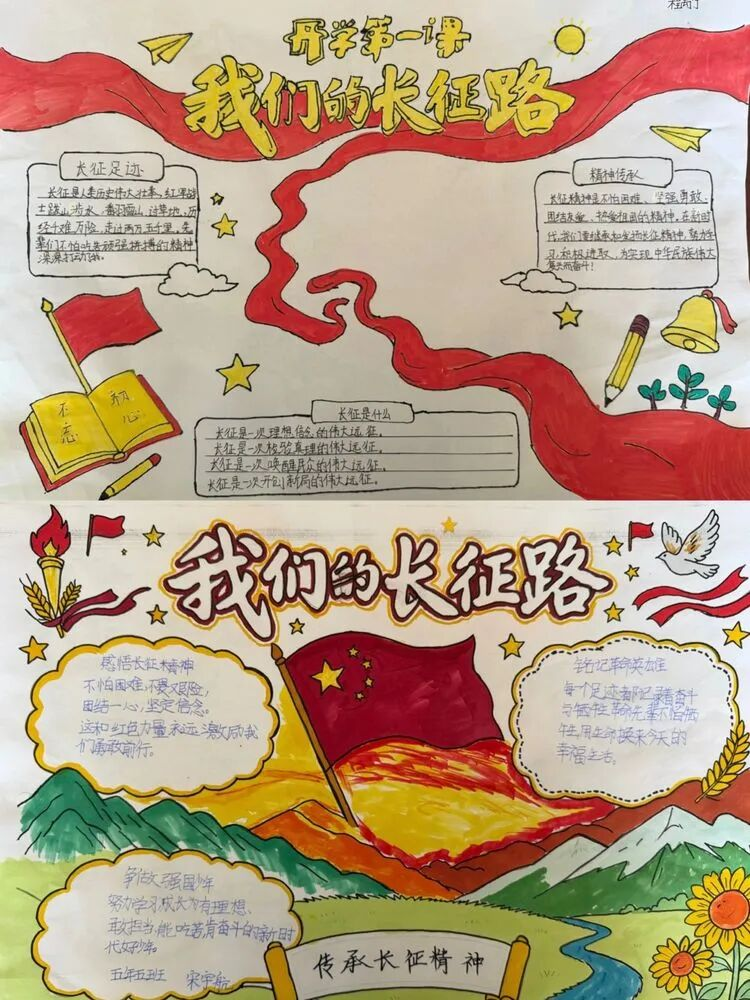 开学第一课
我们的长征路
长征足迹
长征是人类历史伟大壮举,红军战
士跋山涉水、翻雪山、过草地,历
经千难万险,走过两万五千里,先
辈们不怕吃苦顽强拼搏的精神
深深打动了我。
精神传承
长征精神是不怕困难、坚强勇敢、
团结友爱、热爱祖国的精神。在新时
代,我们要继承和发扬长征精神,努力学
习,积极进取,为实现中华民族伟大
复兴而奋斗!
不忘
初心
长征是什么
长征是一次理想信念的伟大远征。
长征是一次检验真理的伟大远征。
长征是一次唤醒民众的伟大远征。
长征是一次开创新局的伟大远征。
我们的长征路
感悟长征精神
不怕困难,不畏艰险,
团结一心,坚定信念。
这种红色力量永远激励我
们勇敢前行。
铭记革命英雄
每个足迹都记录着奋斗
与牺牲,革命先辈不怕牺
牲,用生命换来今天的
幸福生活。
争做强国少年
努力学习,成长为有理想、
敢担当,能吃苦肯奋斗的新时
代好少年。
五年五班 宋宇航
传承长征精神